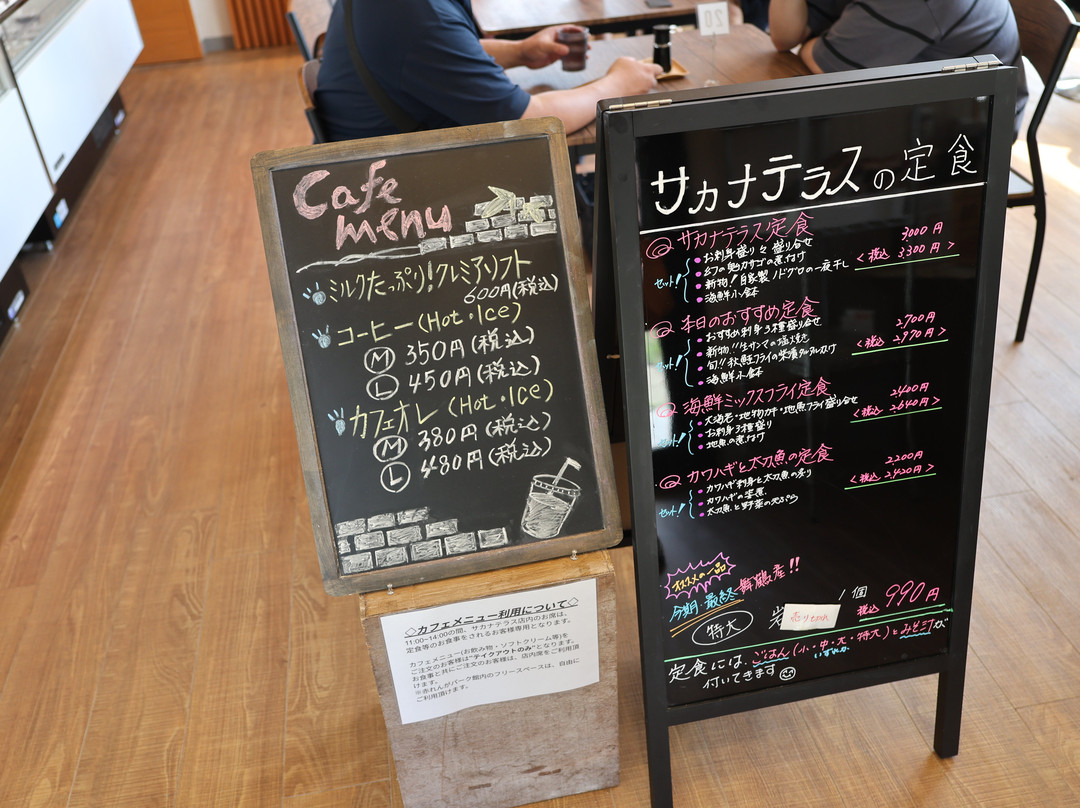 20
Cafe
menu
ミルクたっぷり!クレミアソフト
600円(税込)
コーヒー(Hot・Ice)
M 350円(税込)
L 450円(税込)
カフェオレ(Hot・Ice)
M 380円(税込)
L 480円(税込)
◇カフェメニュー利用について◇
11:00~14:00の間、サカナテラス店内のお席は、
定食等のお食事をされるお客様専用となります。
カフェメニュー(お飲み物・ソフトクリーム等)を
ご注文のお客様は"テイクアウトのみ"となります。
お食事と共にご注文のお客様は、店内席をご利用頂
けます。
※赤れんがパーク館内のフリースペースは、自由に
ご利用頂けます。
サカナテラスの定食
サカナテラス定食 3,000円
<税込 3,300円>
セット!
お刺身盛り々盛り合せ
幻の魚カサゴの煮付け
新物!自家製ノドグロの一夜干し
海鮮小鉢
本日のおすすめ定食 2,700円
<税込 2,970円>
セット!
おすすめ刺身3種盛り合せ
新物!!生サンマの塩焼き
旬!!秋鮭フライの柴漬タルタルがけ
海鮮小鉢
海鮮ミックスフライ定食 2,400円
<税込 2,640円>
セット!
大海老・地物カキ・地魚フライ盛り合せ
お刺身3種盛り
地魚の煮付け
カワハギと太刀魚の定食 2,200円
<税込 2,420円>
セット!
カワハギ刺身と太刀魚の炙り
カワハギの煮
太刀魚と野菜の天ぷら
オススメの一品
今期最終舞鶴産!!
特大 岩
売り切れ
1個
税込 990円
定食には、ごはん(小・中・大・特大)とみそ汁が
いずれか
付いてきます